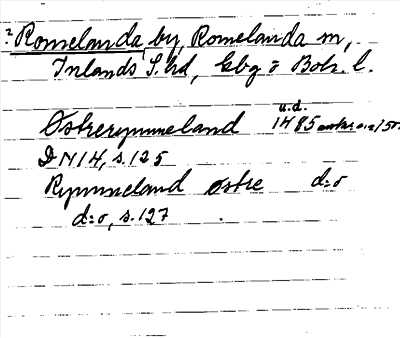 ? Romelanda by, Romelanda sn,
Inlands S. hd, Gbg o Boh. l.
u.d.
Østrerymmeland 1485
DN 14, s. 125
Rymmeland østre d:o
d:o, s. 127